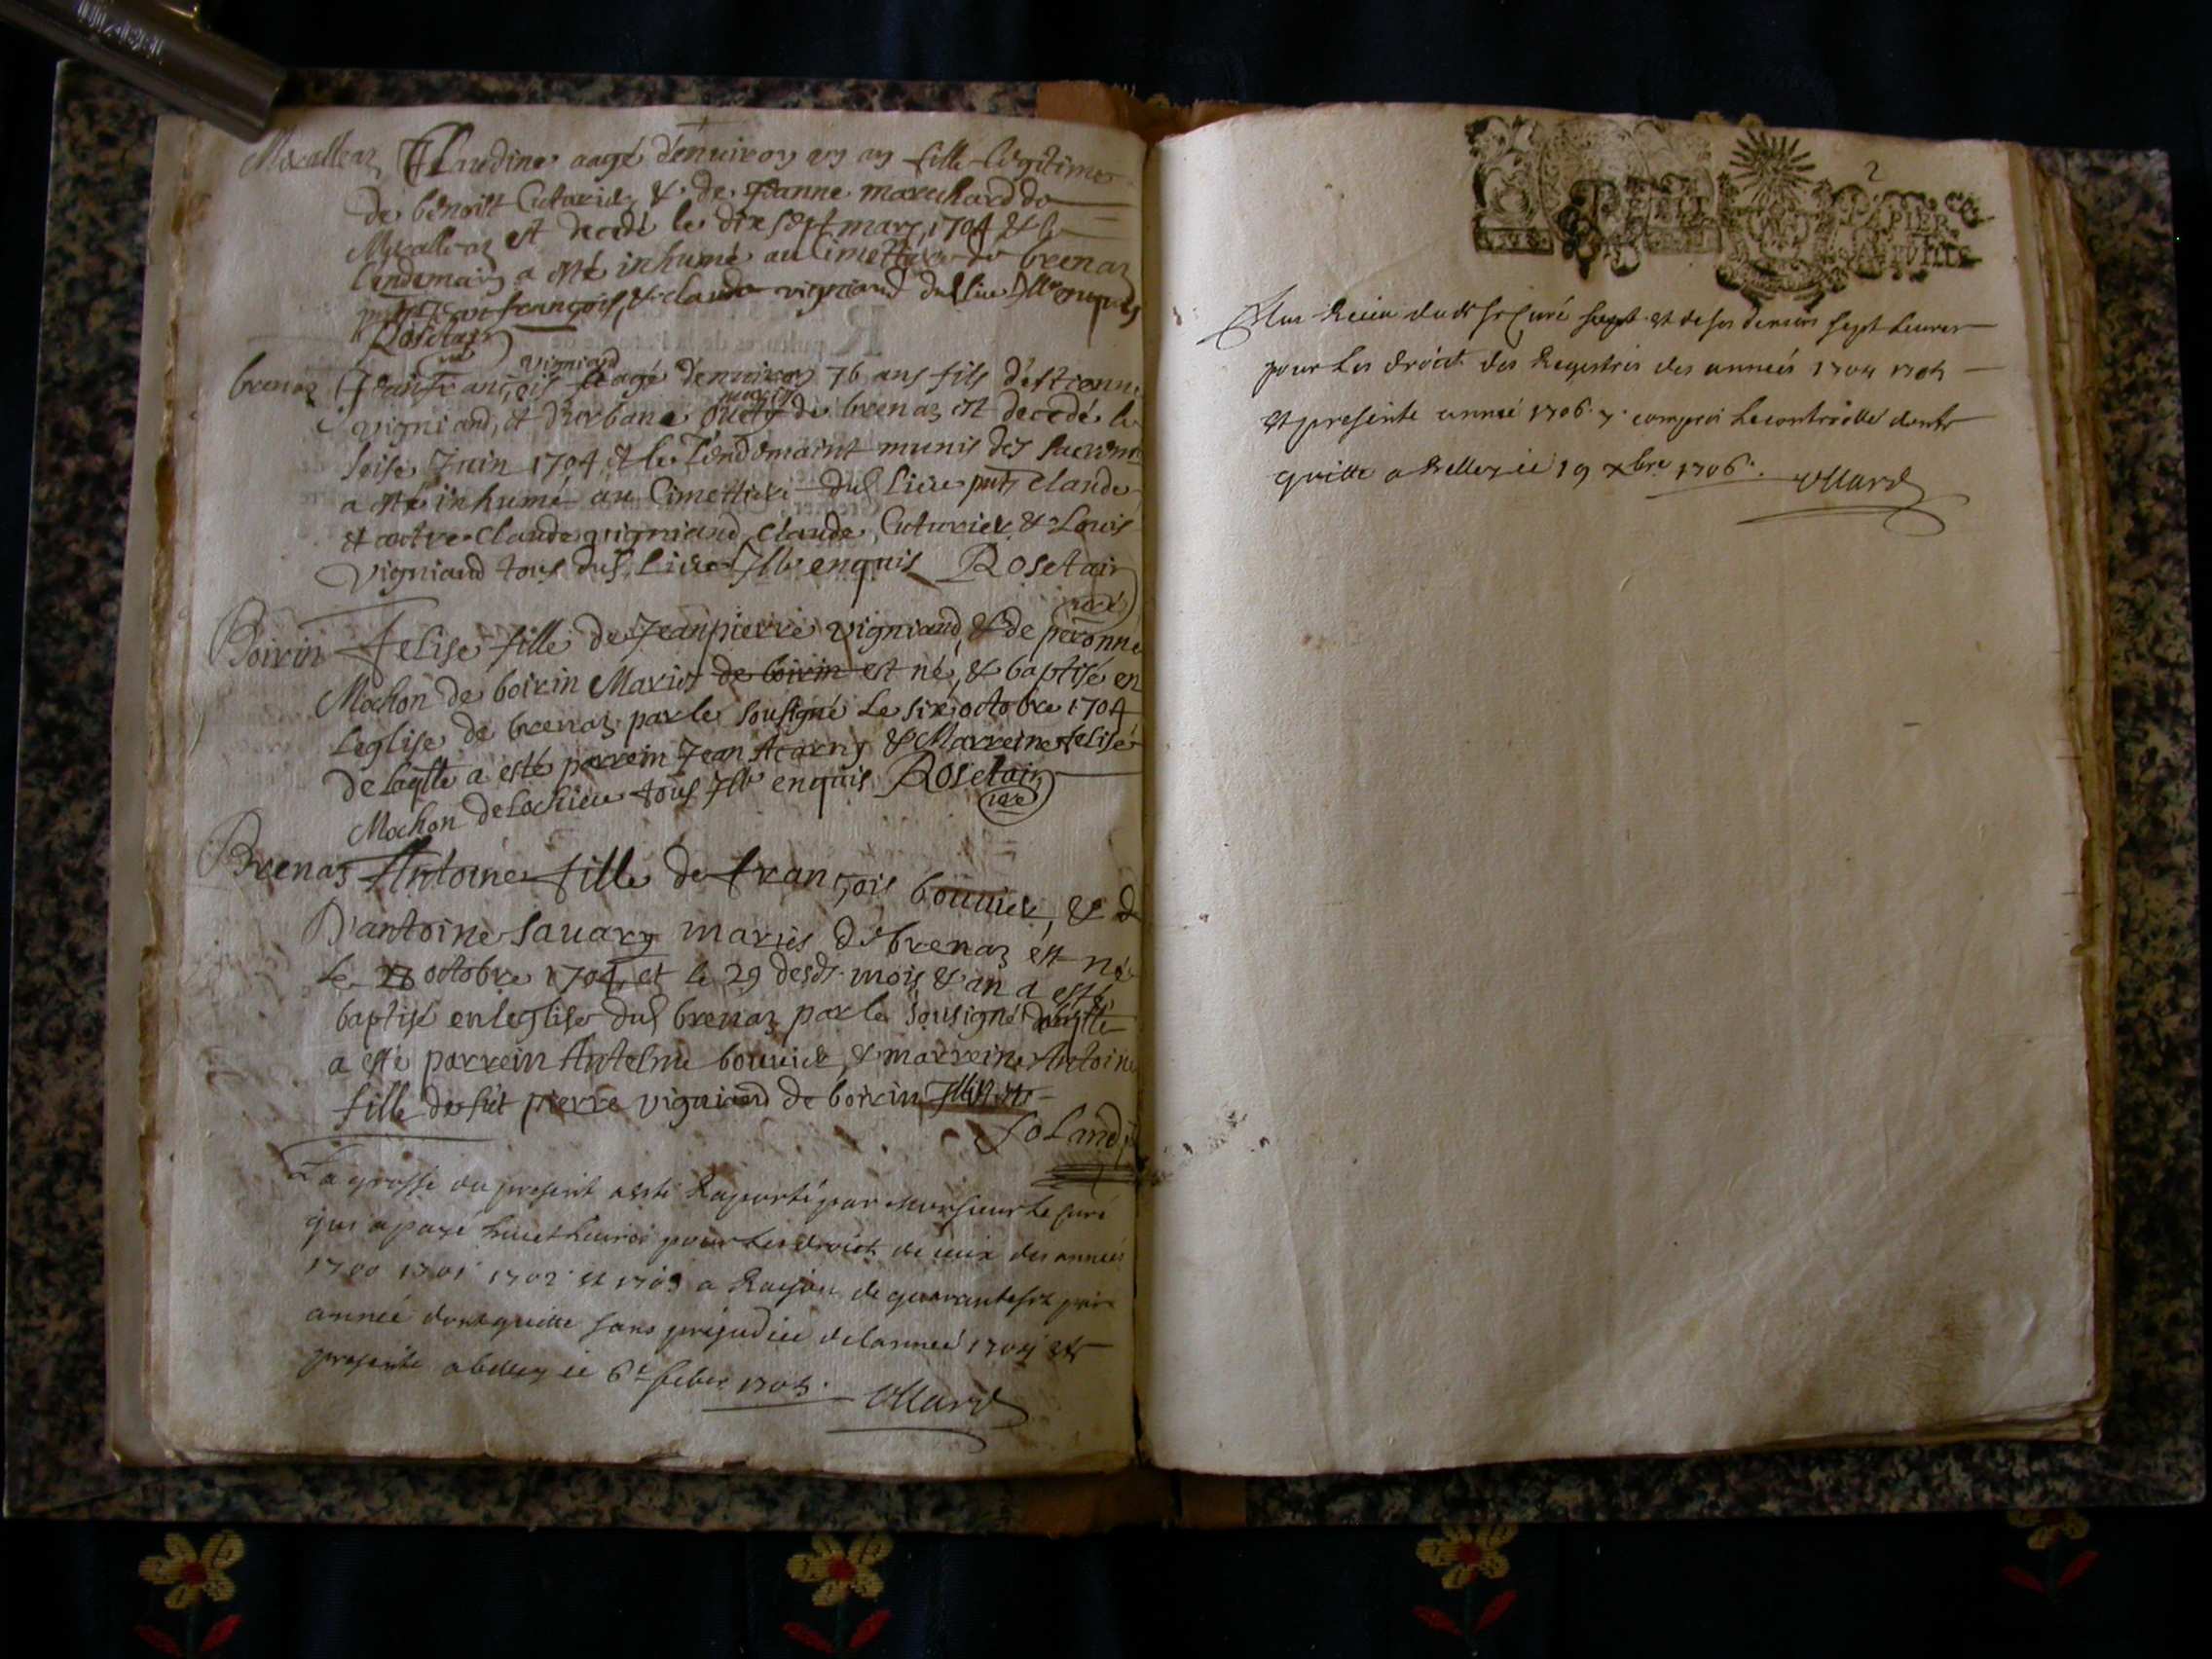 Claudine aagé d'enuiron un an fille legitime
de benoist Cuturier & de Jeanne marchand de
est decedé le dix sept mars 1704 & le
lendemain a esté inhumé au Cimettiere de brenaz
françois, & claude vigniand dud lieu Ill. enquis
Rosetain
curé
vigniand
brenaz Jean françois aagé d'enuiron 76 ans fils d'estienne
mariés
vigniand, et d'urbane de brenaz est decedé le
seise Juin 1704 & le lendemaint munis des sacrem
a esté inhumé au Cimettiere dud lieu pnts claude
et autre claude vigniand, claude Cuturier & Louis
vigniand tous dud lieu Ill. enquis Rosetain
curé
Boirin Felise fille de Jeanpierre vigniand & de peronne
Mochon de boirin Mariés de boirin est né, & baptisé en
Leglise de brenaz par le sousigné Le six octobre 1704
de laqlle a esté parrein Jean & Marreine felise
Mochon de Lochieu tous Ill. enquis Rosetain
curé
Brenaz Antoine fille de françois bouuier, & d
D'antoine sauary mariés de brenaz est né
le 28 octobre 1704 et le 29 desd. mois & an a esté
baptisé en leglise dud brenaz par le sousigné
a esté parrein Antelme bouuier, & marreine Antoine
fille de fût pierre vigniand de boirin
La grosse du present a esté Raporté par Monsieur Le Curé
qui a payé huict Liures pour Les droict de ceux des années
1700 1701 1702 et 1703 a Raison de quarante sols par
année dont quitte sans prejudice de lannée 1704 et
presente a belley ce 6e feber 1705. Ullard
2
PETIT PAPIER
Plus Receu dudt Sr Curé sept et de ses deniers sept Liures
pour Les droict des Registres des années 1704 1705
et presente année 1706 y compris Le controolle dont
quitte a Belley ce 19 xbre 1706. Ullard